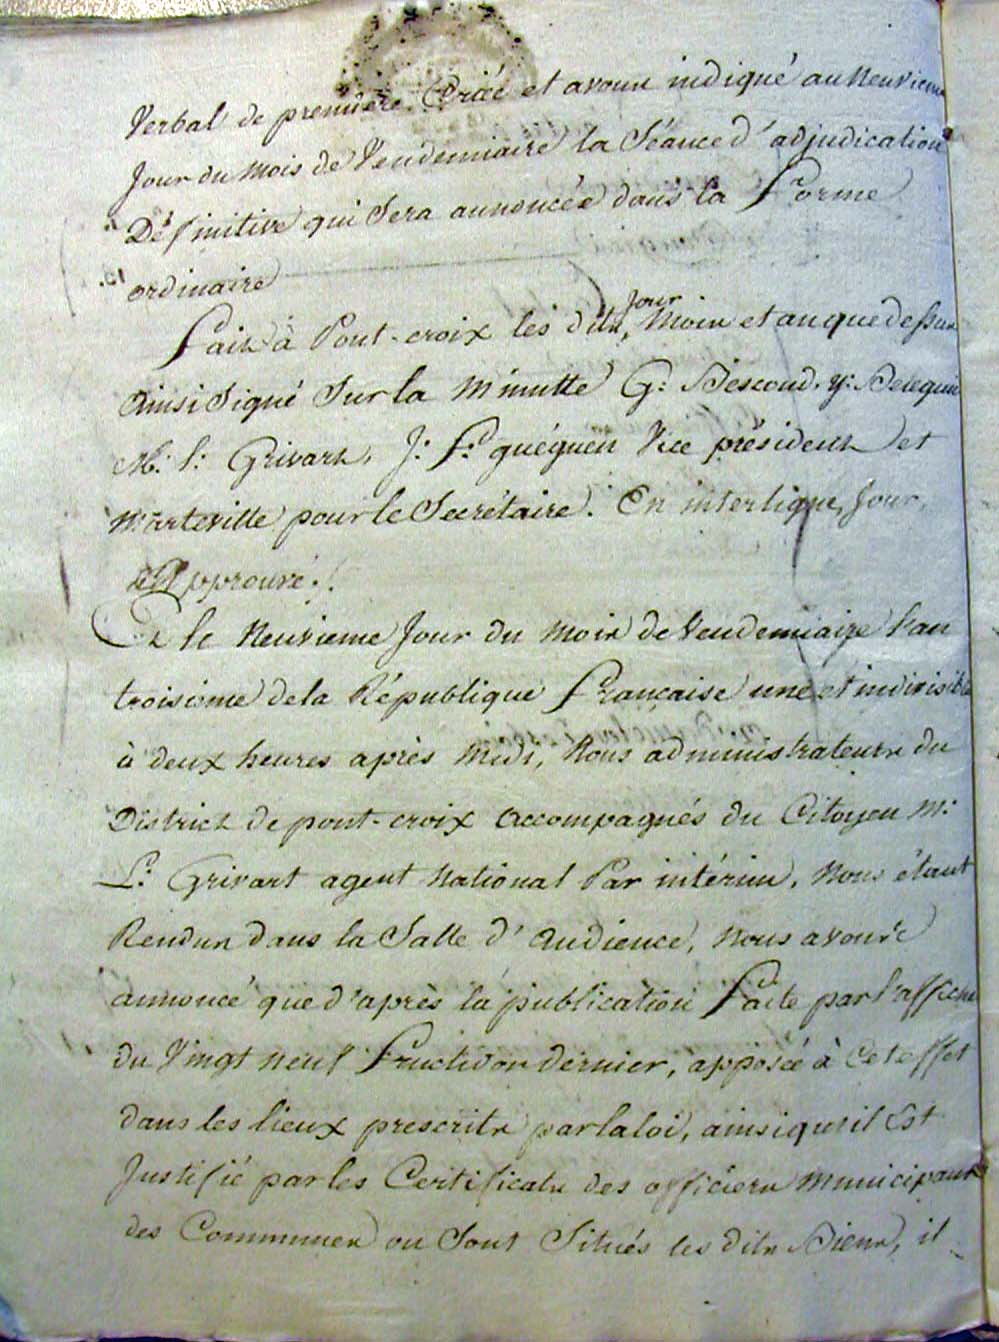 Verbal de première Criée et avons indiqué au Neuvieme
Jour du mois de Vendemiaire la Séance d'adjudication
Définitive qui Sera annoncée dans la Forme
ordinaire
Jour
Fait à Pont-croix les dits, Moin et an que dessus
Ainsi Signé Sur la Minutte G: Bescond, y:
M: l: Grivart, J: F: guéguen Vice président et
Marteville pour le Secrétaire. En interligne, Jour,
Approuvé./.
Et le Neuvieme Jour du Mois de Vendemiaire l'an
troisieme de la République française une et indivisible
à deux heures après Midi, Nous administrateurs du
District de pont-croix accompagnés du Citoyen M:
L: Grivart agent National Par intérim, Nous étant
Rendus dans la Salle d'audience, Nous avons
annoncé que d'après la publication Faite par l'affiche
du Vingt neuf Fructidor dernier, apposée à Cet effet
dans les lieux prescrits par la loi, ainsi qu'il Est
Justifié par les Certificats des officiers Municipaux
des Communes ou Sont Situés les dits Biens, il